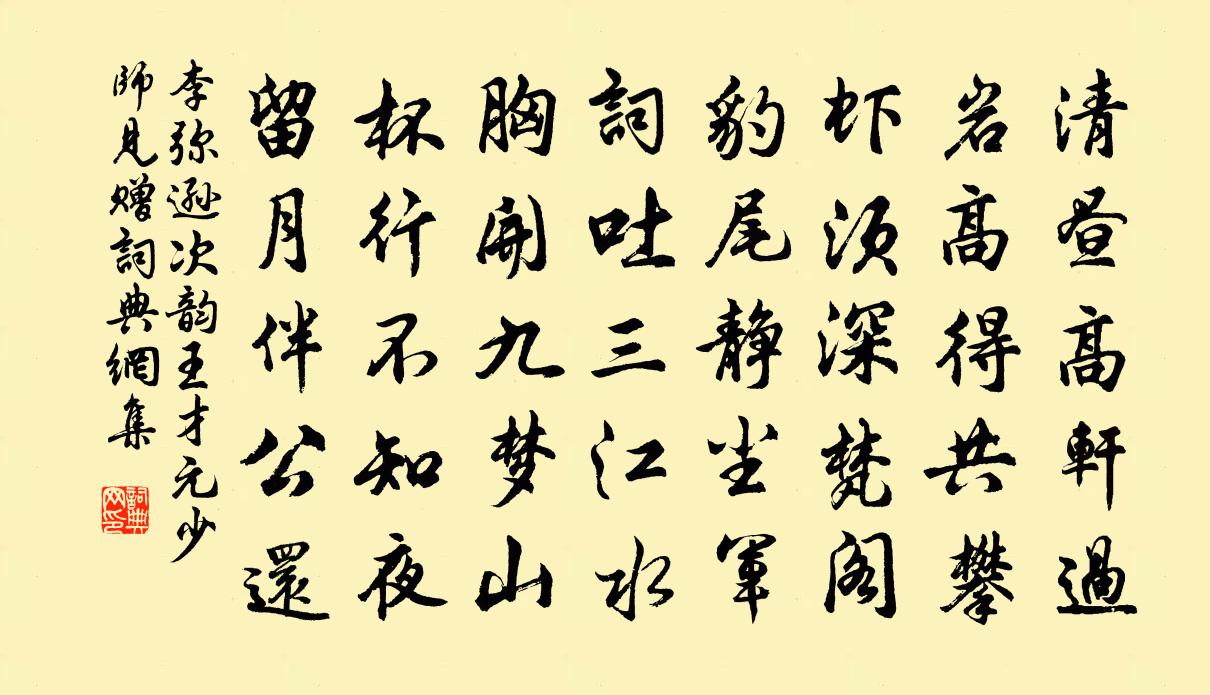 清昼高軒過
岩高得共攀
虾须深梵阁
豹尾静尘军
詞吐三江水
胸開九梦山
杯行不知夜
留月伴公還
李弥遜次韵王才元少
師見赠詞典網集
詞典网印